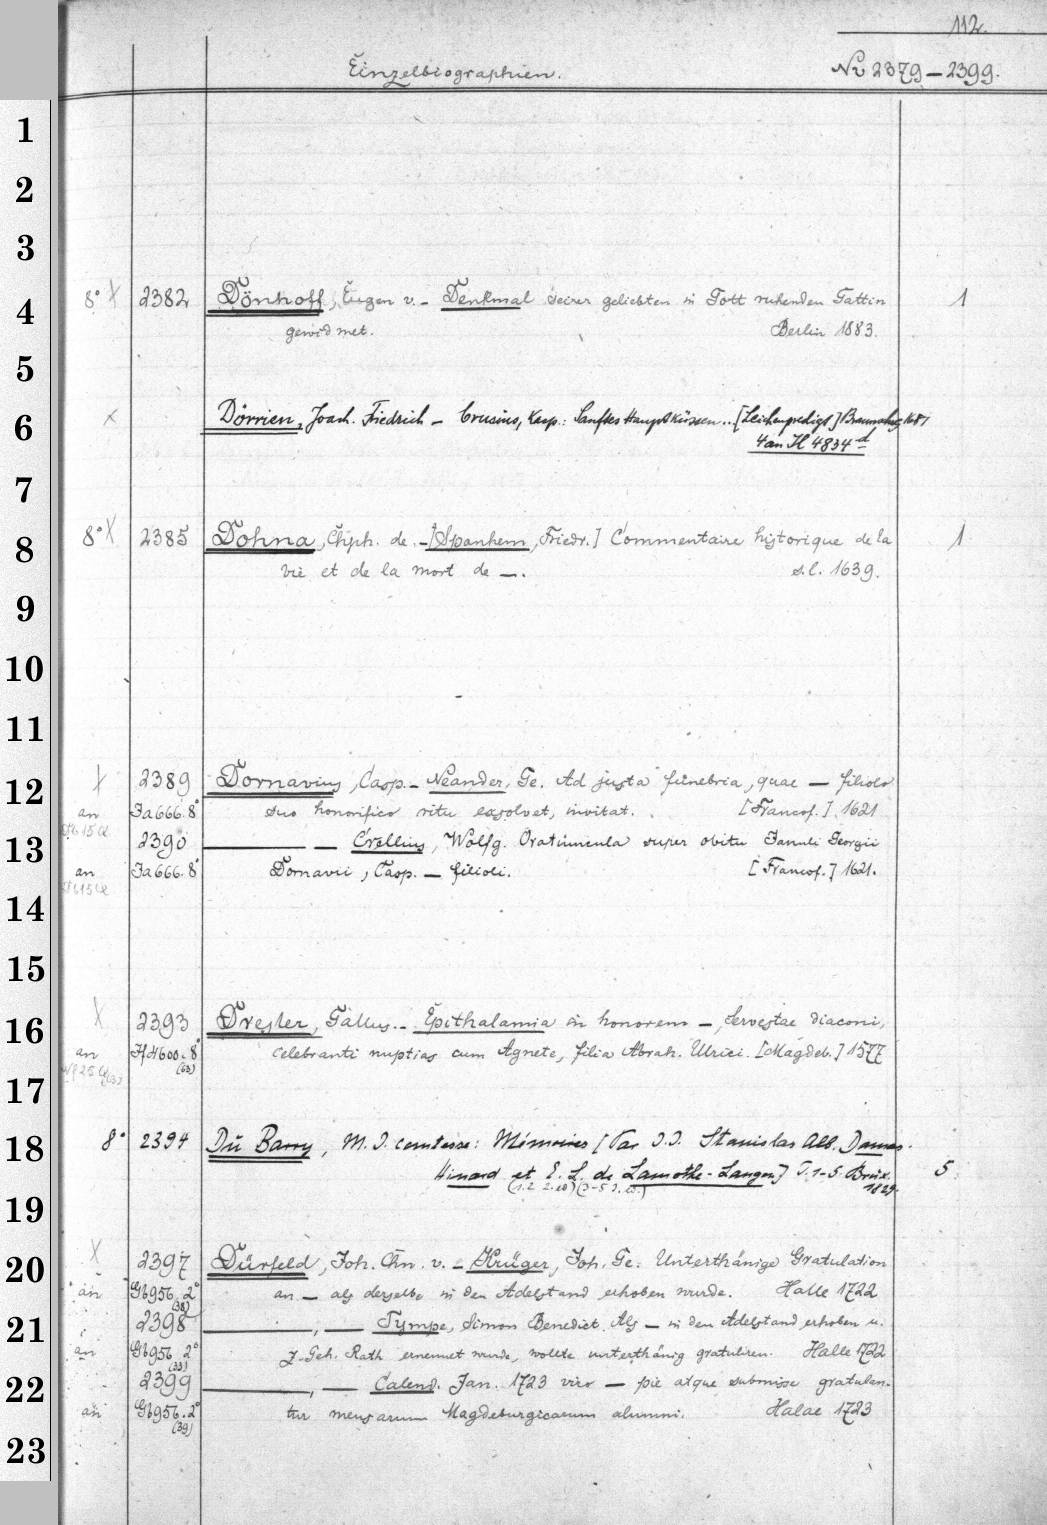 112.
Einzelbiographien. No 2379-2399.
1
2
3
8° X 2382 Dönhoff, Eugen v. - Denkmal seiner geliebten in Gott ruhenden Gattin 1
4
gewidmet. Berlin 1883.
5
x Dörrien, Joach. Friedrich - Crusius, Kasp.: Sanftes Hauptküssen.. [Leichenpredigt]
6
4 an H 4834 d
7
8° X 2385 Dohna, Chph. de. - [Spanhem, Friedr.] Commentaire historique de la 1
8
vie et de la mort de -. s.l. 1639.
9
10
11
X 2389 Dornavius, Casp. - Neander, Ge. Ad justa funebria, quae - filiolo
12
an Ja 666. 8° suo honorifico ritu exsolvet, invitat. [Francof.] 1621
2390 - Crellius, Wolfg. Oratiuncula super obitu Januli Georgii
13
an Ja 666. 8° Dornavii, Casp. - filioli. [Francof.] 1621.
14
15
X 2393 Dresler, Gallus. - Epithalamia in honorem - Servestae diaconi,
16
an 8° (63) celebranti nuptias cum Agnete, filia Abrah. Ulrici. [Magdeb.] 1577
17
8° 2394 Du Barry, M. J. comtesse: Mémoires [Par J. J. Stanislas Alb. Damas
18
Hinard et E. L. de Lamothe-Langon] T. 1-5 Brux. 1829. 5
19
X 2397 Dürfeld, Joh. Chn. v. - Krüger, Joh. Ge. Unterthänige Gratulation
20
an Gb 956. 2° (38) an - als derselbe in den Adelstand erhoben wurde. Halle 1722
2398 -, - Tympe, Simon Benedict. Als - in den Adelstand erhoben u.
21
an Gb 956 2° z. Geh. Rath ernennet wurde, wollte unterthänig gratuliren. Halle 1722
2399 -, - Calend. Jan. 1723 viro - pie atque submisse gratulan-
22
an Gb 956. 2° (39) tur mensarum Magdeburgicarum alumni. Halae 1723
23